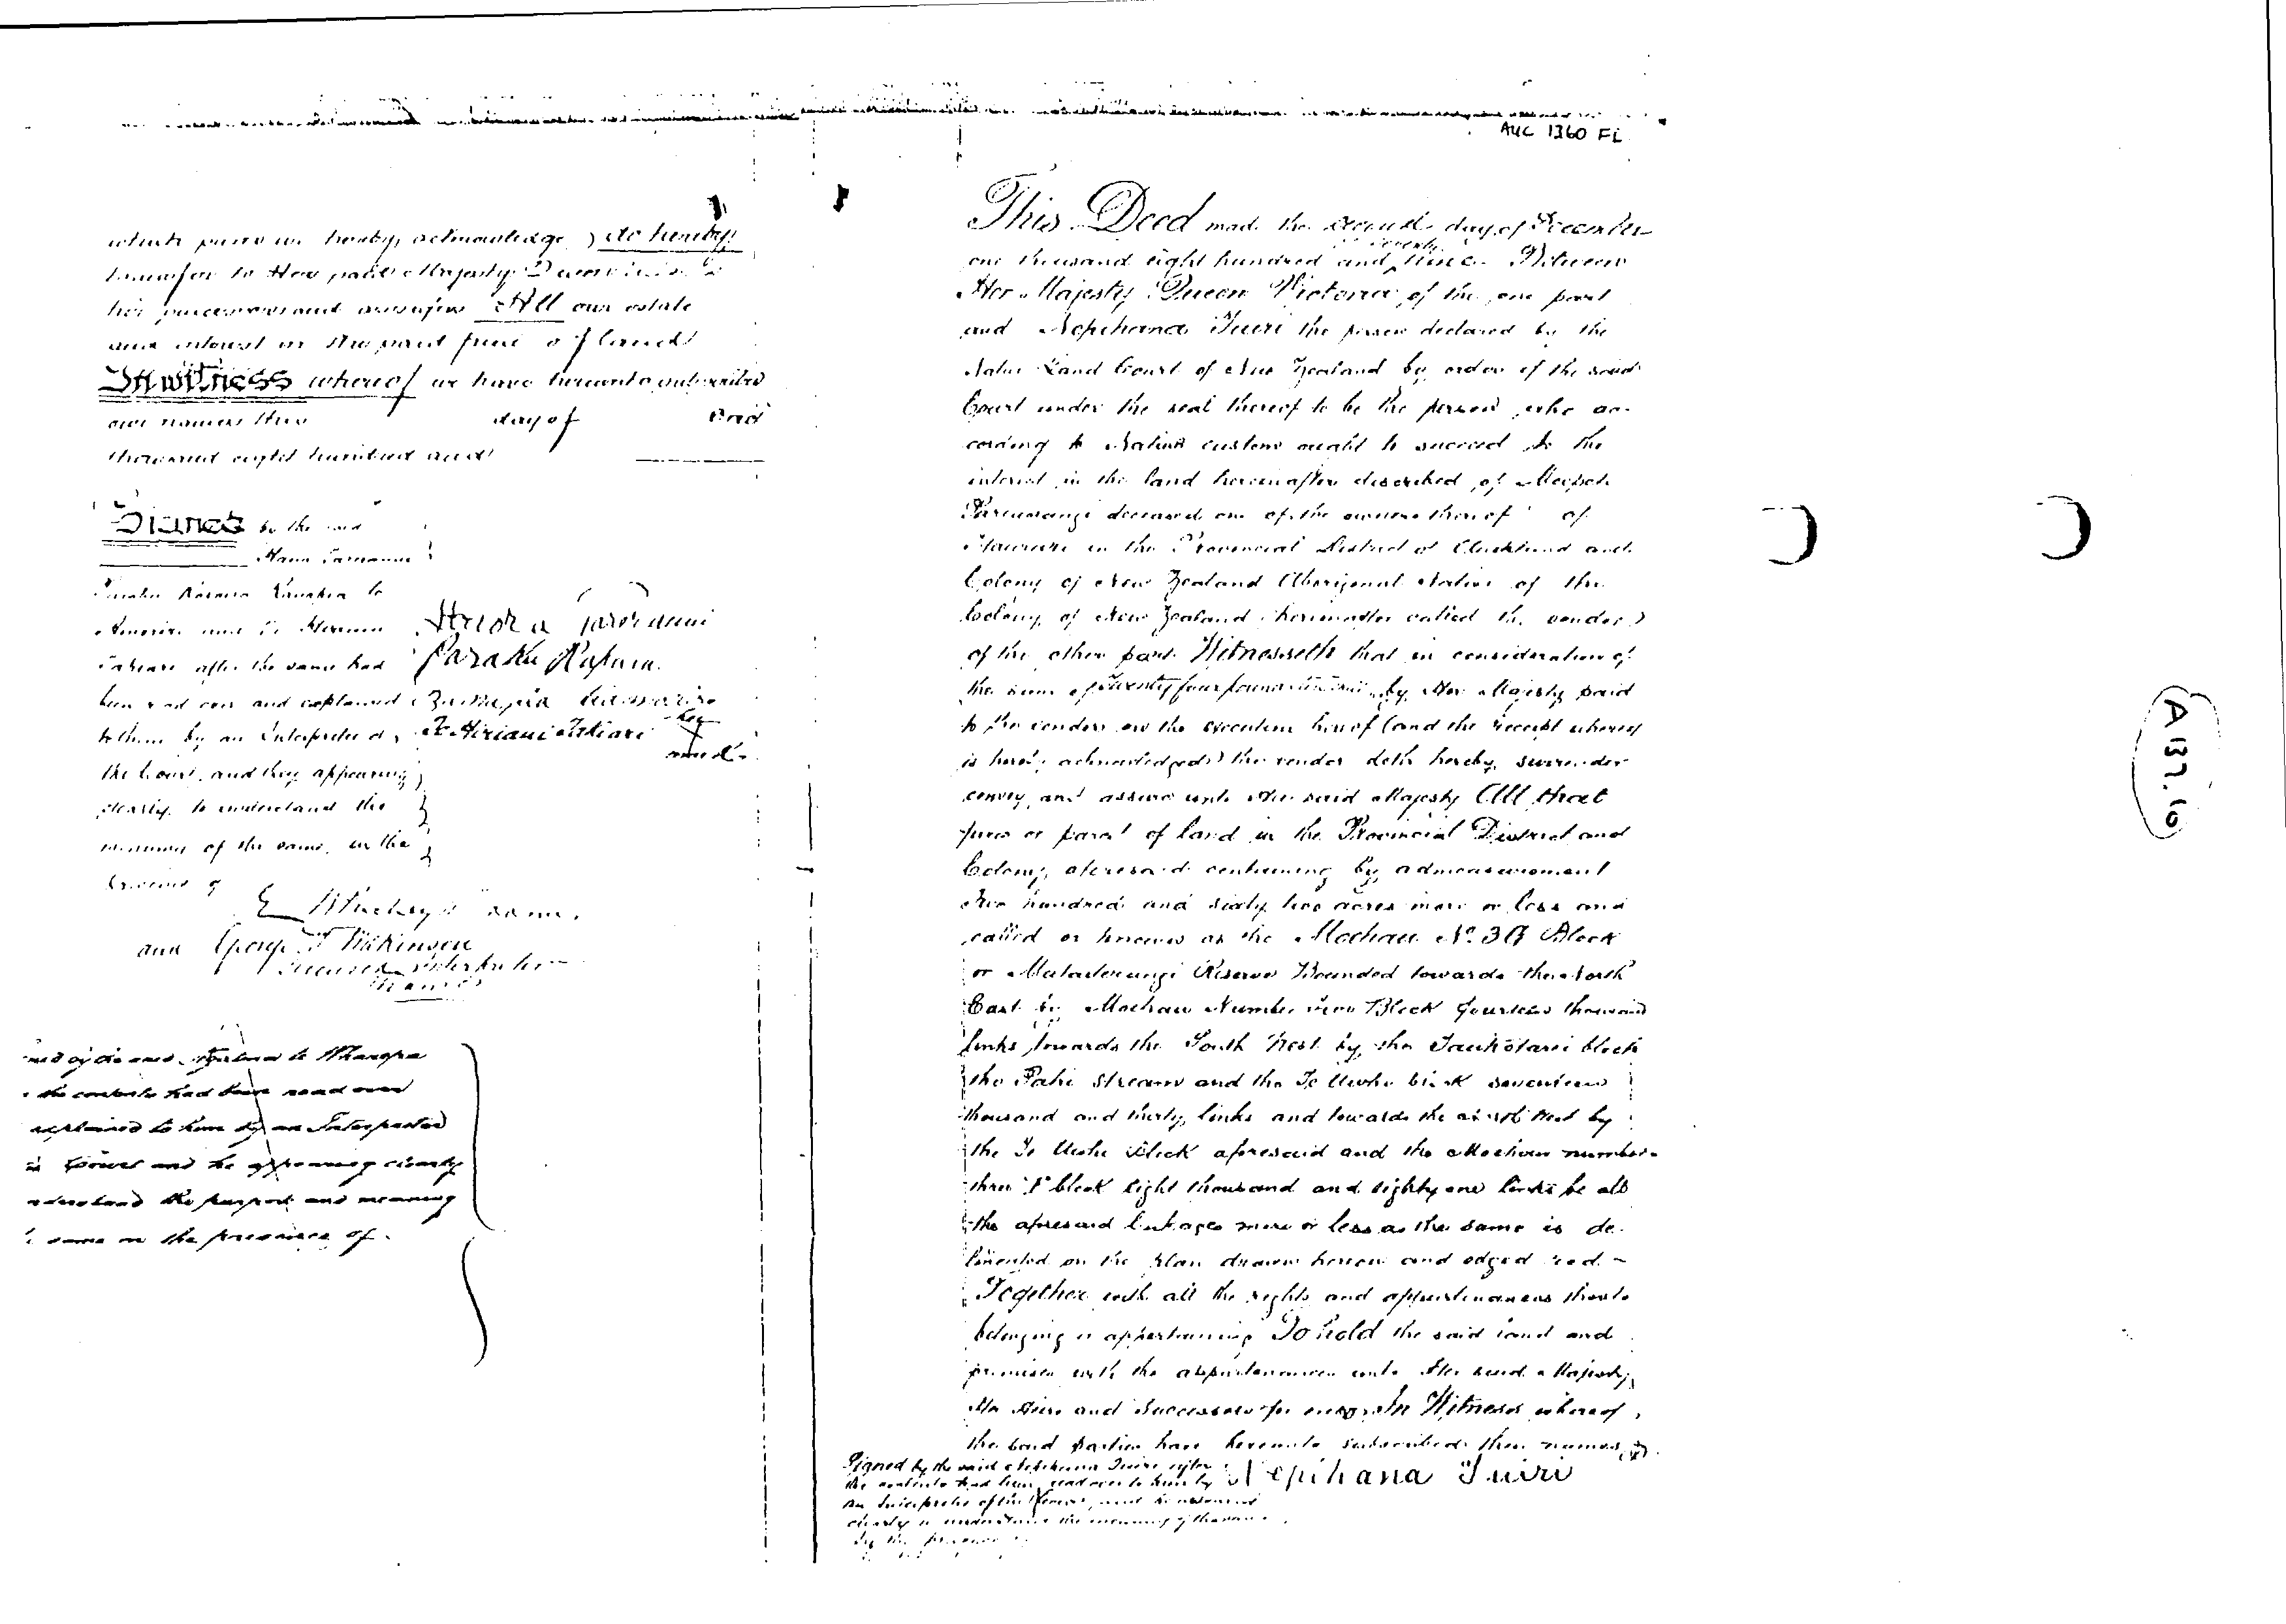 AUC 1360 FL
which sum we hereby acknowledge) do hereby
transfer to Her said Majesty Queen Victoria
her successors and assigns All our estate
and interest in the said piece of land
In witness whereof we have hereunto subscribed
our names this day of One
thousand eight hundred and
Signed by the said
to
and
after the same had
been read over and explained
to them by an Interpreter of
the Court, and they appearing
clearly to understand the
meaning of the same, in the
presence of
and George T Wilkinson
Licensed Interpreter
Thames
the contents had been read over
explained to him by an Interpreter
Court and he appearing clearly
understand the purport and meaning
same in the presence of
This Deed made the second day of December
one thousand eight hundred and seventy nine Between
Her Majesty Queen Victoria of the one part
and Nepihana Tuiri the person declared by the
Native Land Court of New Zealand by order of the said
Court under the seal thereof to be the person who ac-
cording to Native custom ought to succeed to the
interest in the land hereinafter described of
deceased one of the owners thereof of
in the Provincial District of Auckland and
Colony of New Zealand Aboriginal Native of the
Colony of New Zealand (hereinafter called the vendor)
of the other part Witnesseth that in consideration of
the sum of Twenty four pounds by Her Majesty paid
to the vendor on the execution hereof (and the receipt whereof
is hereby acknowledged) the vendor doth hereby surrender
convey and assure unto Her said Majesty All that
piece or parcel of land in the Provincial District and
Colony aforesaid containing by admeasurement
hundred and sixty two acres more or less and
called or known as the Moehau No. 3G Block
or Reserve Bounded towards the North
East by Moehau Number Block fourteen thousand
links towards the South West by the block
the Pahi stream and the Te block seventeen
thousand and thirty links and towards the West by
the Te Block aforesaid and the Moehau number
three block eight thousand and eighty one links be all
the aforesaid linkages more or less as the same is de-
lineated on the plan drawn hereon and edged red -
Together with all the rights and appurtenances thereto
belonging or appertaining To hold the said land and
premises with the appurtenances unto Her said Majesty
Her Heirs and Successors for ever In Witness whereof
the said parties have hereunto subscribed their names
Signed by the said Nepihana Tuiri after
the contents had been read over to him by
an Interpreter of the Court, and he appearing
clearly to understand the meaning of the same
in the presence
Nepihana Tuiri
A 137.10